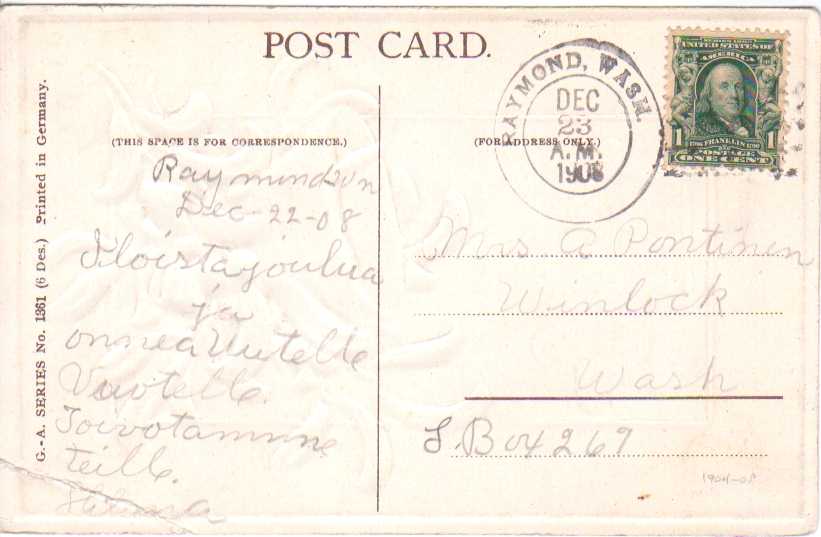 POST CARD.
(THIS SPACE IS FOR CORRESPONDENCE.)
(FOR ADDRESS ONLY.)
G.-A. SERIES No. 1361 (6 Des.) Printed in Germany.
RAYMOND, WASH.
DEC
23
A.M.
1908
SERIES 1902
UNITED STATES OF
AMERICA
1 1706 FRANKLIN 1790 1
POSTAGE
ONE CENT
Raymond
Dec-22-08
Iloista joulua
ja
onnea Uutelle
Vuotelle.
Toivotamme
teille.
Mrs A Pontinen
Winlock
Wash
L. Box 269